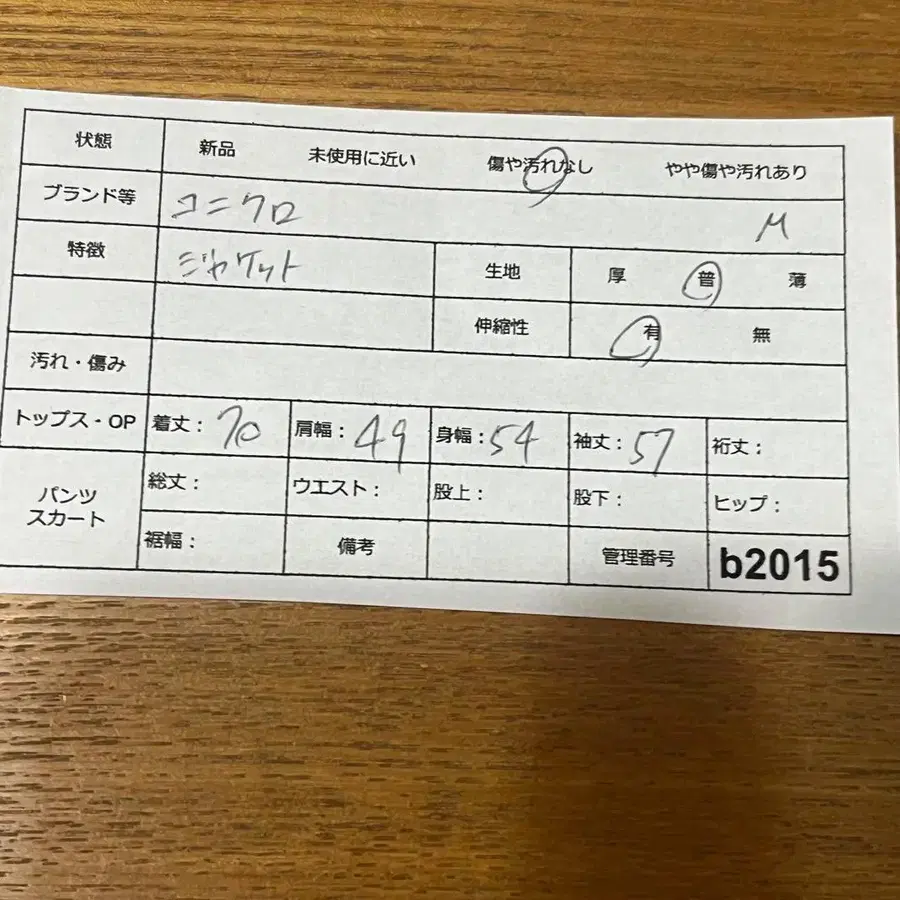 状態 新品 未使用に近い 傷や汚れなし やや傷や汚れあり
ブランド等 ユニクロ M
特徴 ジャケット 生地 厚 普 薄
伸縮性 有 無
汚れ・傷み
トップス・OP 着丈: 70 肩幅: 49 身幅: 54 袖丈: 57 裄丈:
パンツ スカート 総丈: ウエスト: 股上: 股下: ヒップ:
裾幅: 備考 管理番号 b2015